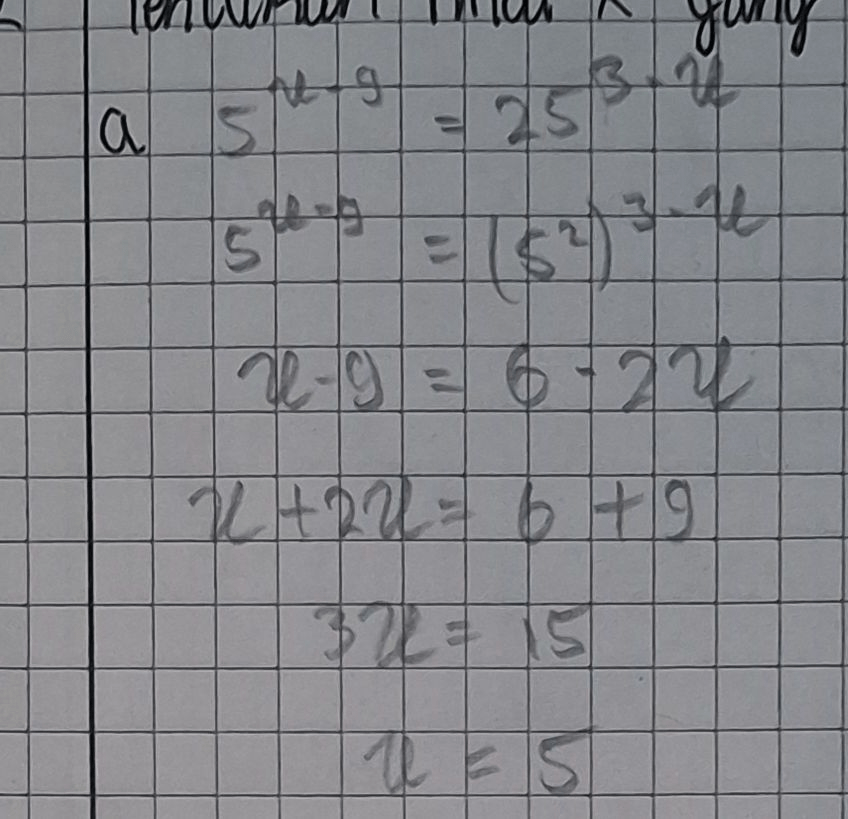 Tentukan nilai x yang
a 5^{x-9} = 25^{3-x}
5^{x-9} = (5²)^{3-x}
x-9 = 6-2x
x+2x = 6+9
3x = 15
x = 5